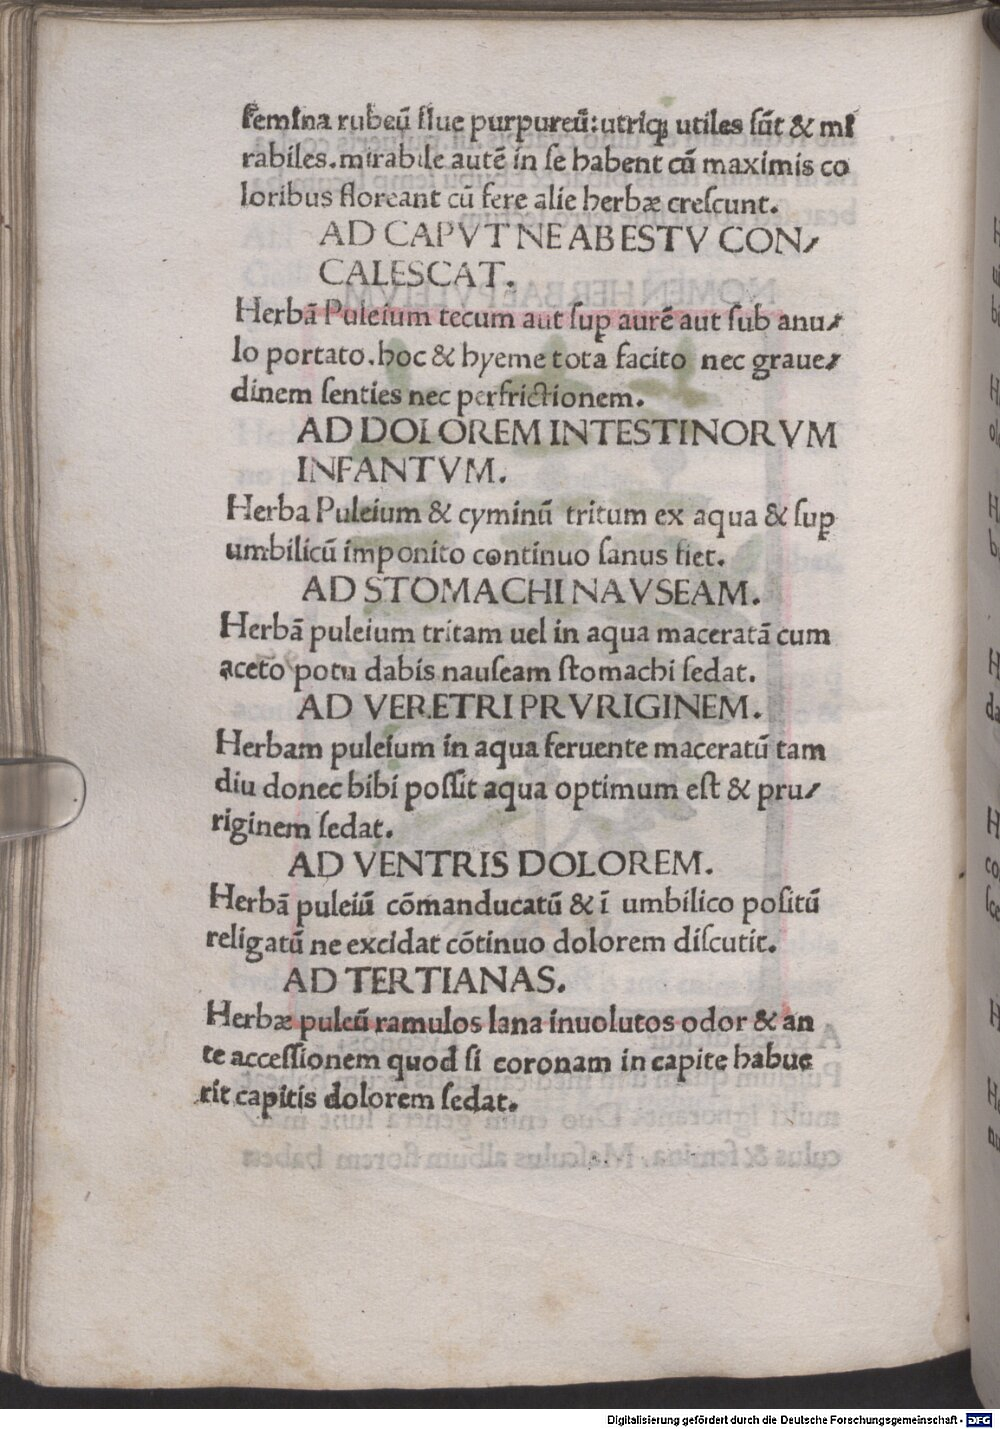 femina rubeū siue purpureū: utriqȝ utiles sūt & mi
rabiles. mirabile autē in se habent cū maximis co
loribus floreant cū fere alie herbæ crescunt.
AD CAPVT NE AB ESTV CON/
CALESCAT.
Herbā Puleium tecum aut sup̱ aurē aut sub anu/
lo portato. hoc & hyeme tota facito nec graue/
dinem senties nec perfrictionem.
AD DOLOREM INTESTINORVM
INFANTVM.
Herba Puleium & cyminū tritum ex aqua & sup̱
umbilicū imponito continuo sanus fiet.
AD STOMACHI NAVSEAM.
Herbā puleium tritam uel in aqua maceratā cum
aceto potu dabis nauseam stomachi sedat.
AD VERETRI PRVRIGINEM.
Herbam puleium in aqua feruente maceratū tam
diu donec bibi possit aqua optimum est & pru/
riginem sedat.
AD VENTRIS DOLOREM.
Herbā puleiū cōmanducatū & ī umbilico positū
religatū ne excidat cōtinuo dolorem discutit.
AD TERTIANAS.
Herbæ puleū ramulos lana inuolutos odor & an
te accessionem quod si coronam in capite habue
rit capitis dolorem sedat.
Digitalisierung gefördert durch die Deutsche Forschungsgemeinschaft - DFG